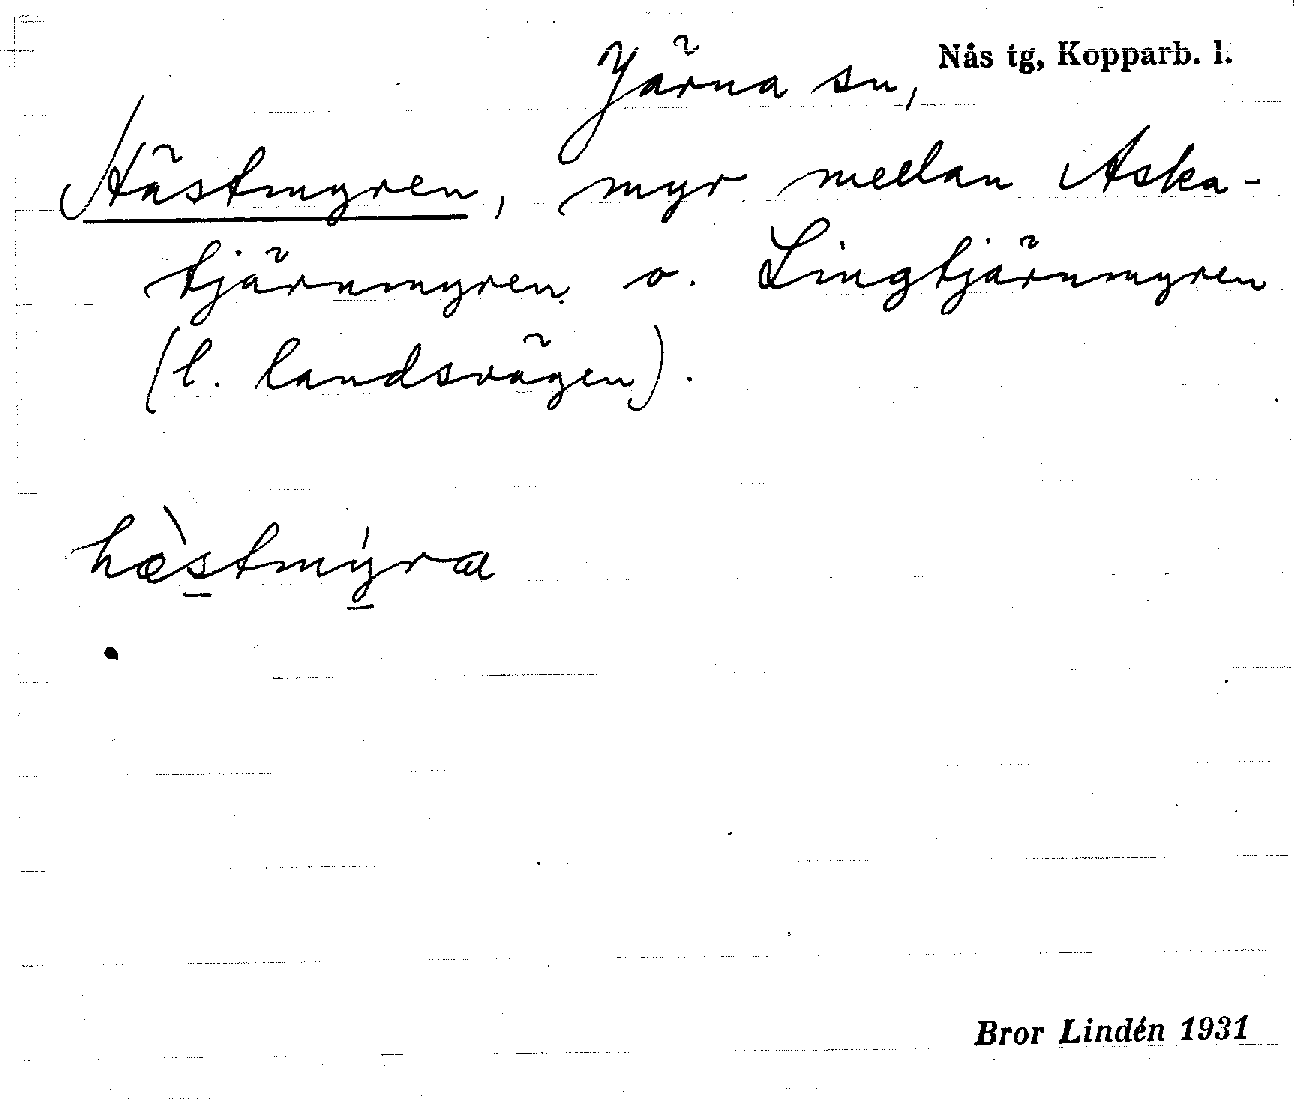 Järna sn, Nås tg, Kopparb. l.
Hästmyren, myr mellan Aska-
tjärnmyren o. Lingtjärnmyren
(l. landsvägen).
hæ̀stmýra
Bror Lindén 1931